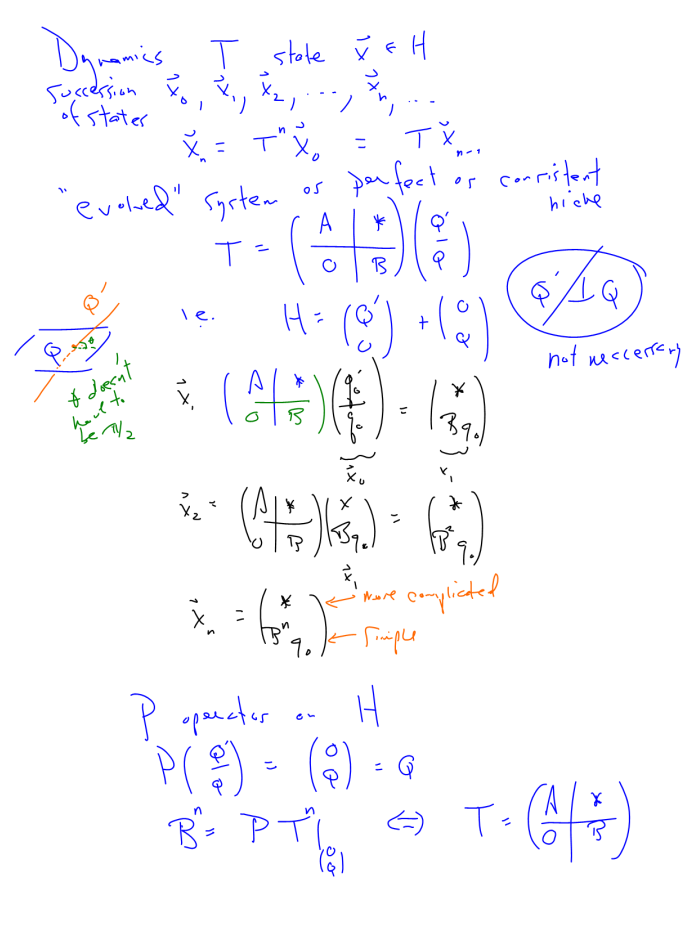 Dynamics T state x⃗ ∈ H
succession x⃗₀, x⃗₁, x⃗₂, ..., x⃗ₙ, ...
of states
x⃗ₙ = Tⁿ x⃗₀ = T x⃗ₙ₋₁
"evolved" system or perfect or consistent
niche
T = ( A | * / 0 | B ) ( Q' / Q )
Q' ⊥ Q
not neccessary
i.e. H = ( Q' / 0 ) + ( 0 / Q )
Q'
Q θ
∗ doesn't
have to
be π/2
x⃗₁ ( A | * / 0 | B ) ( q₀' / q₀ ) = ( * / Bq₀ )
x⃗₀ x₁
x⃗₂ = ( A | * / 0 | B ) ( x / Bq₀ ) = ( * / B²q₀ )
x⃗₁
x⃗ₙ = ( * / Bⁿq₀ ) ← more complicated
← simple
P operator on H
P ( Q' / Q ) = ( 0 / Q ) = Q
Bⁿ = P Tⁿ |₍₀ / Q₎ ⇔ T = ( A | * / 0 | B )